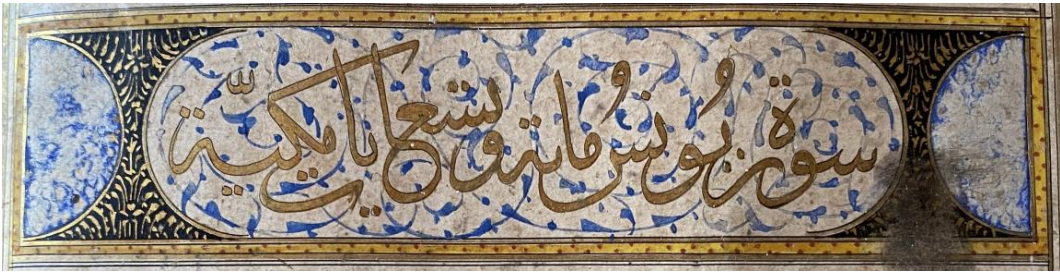 سورة يُونُس ماية وتسع ايات مكيَّة